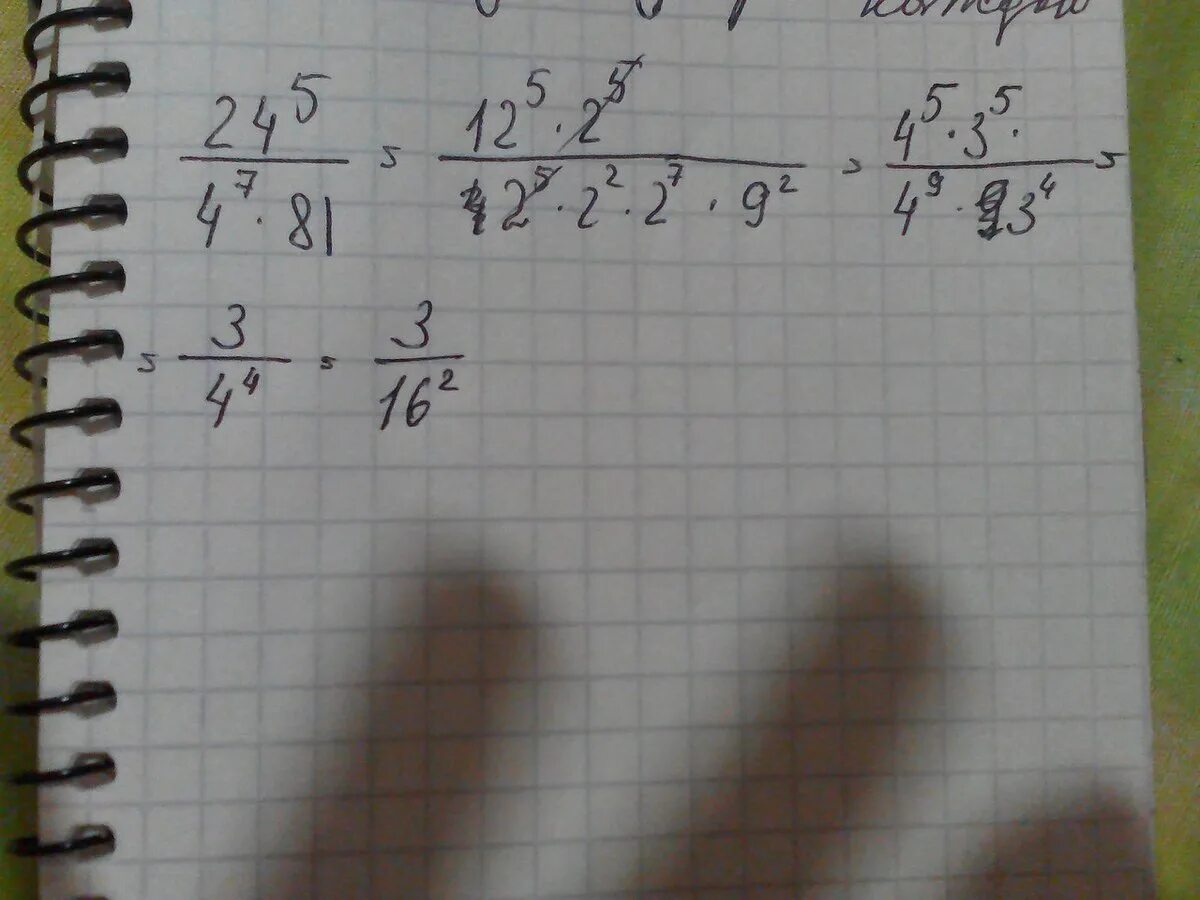 24^5 / (4^7 · 81) = (12^5 · 2^5) / (2^5 · 2^2 · 2^7 · 9^2) = (4^5 · 3^5 ·) / (4^9 · 3^4) =
= 3 / 4^4 = 3 / 16^2